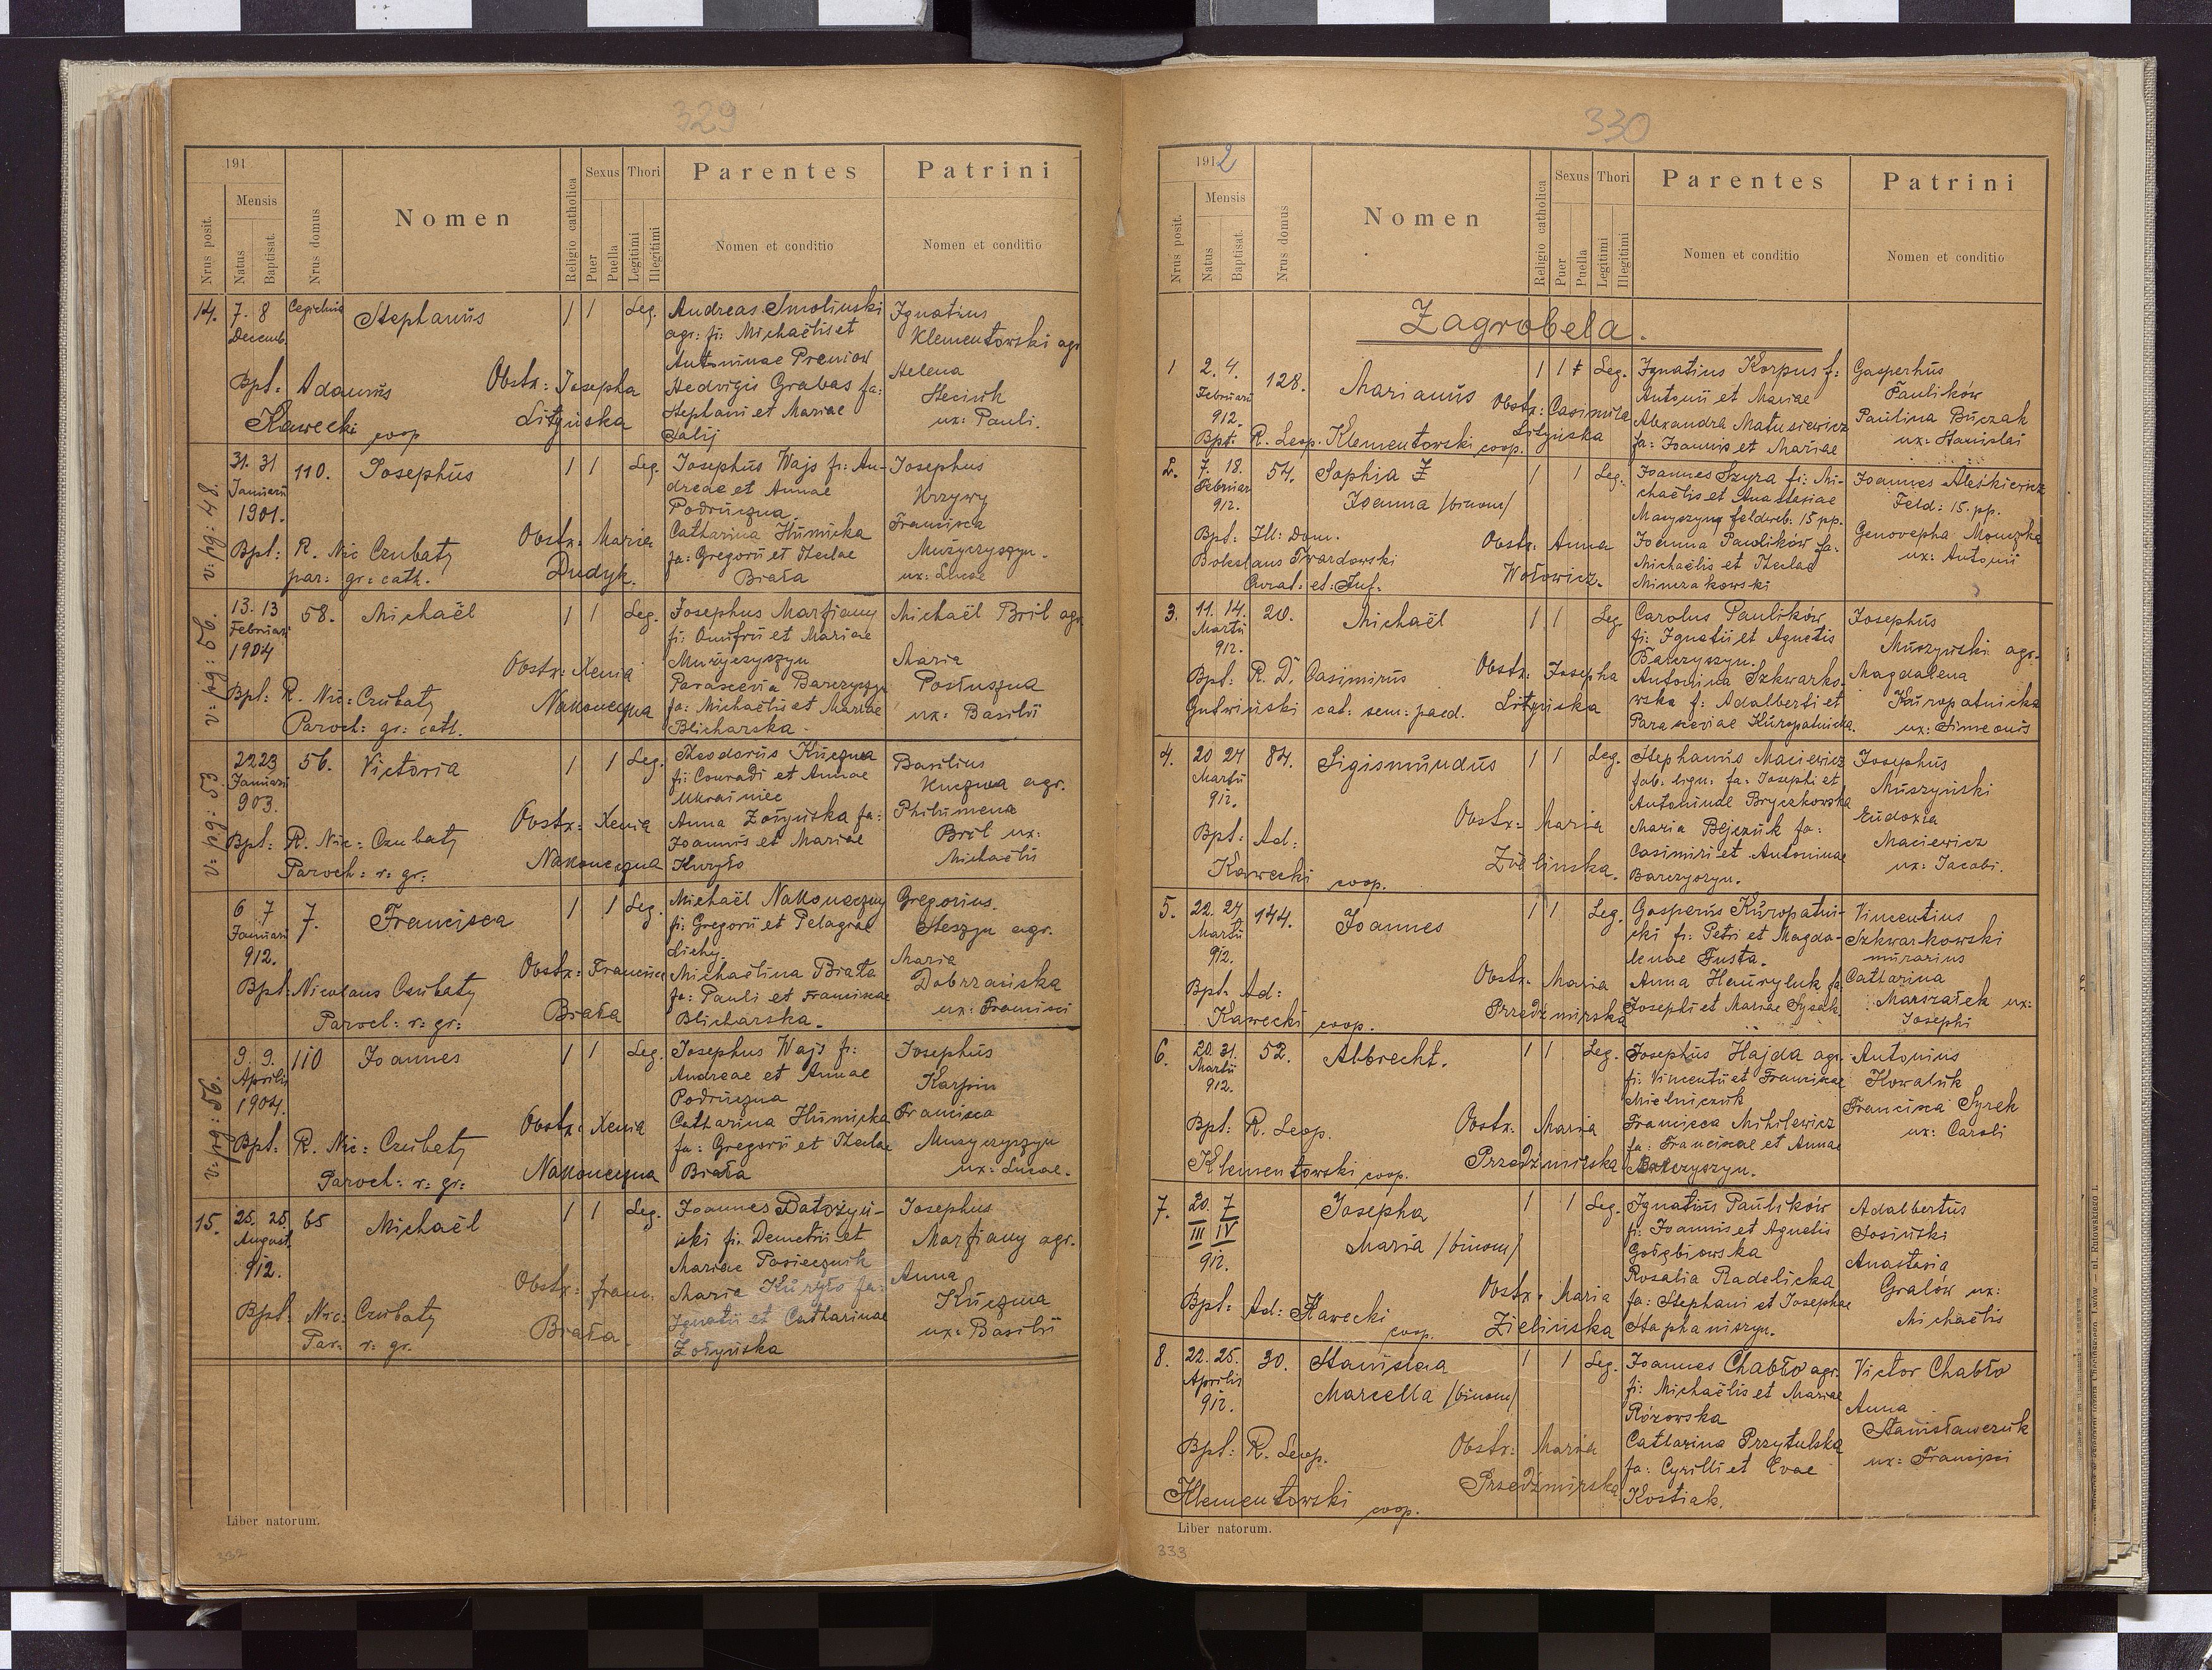 329
191
Nrus posit.
Mensis
Natus
Baptisat.
Nrus domus
Nomen
Religio catholica
Sexus
Puer
Puella
Thori
Legitimi
Illegitimi
Parentes
Nomen et conditio
Patrini
Nomen et conditio
14. 7. 8 Decemb. Cegielnia Stephanus 1 1 Leg.
Bpt: Adamus
Kawecki coop
Obstx: Josepha
Lityńska
Andreas Smoliński
agr: fi: Michaëlis et
Antoninae Preniow
Hedvigis Grabas fa:
Stephani et Mariae
Salij
Ignatius
Klementowski agr
Helena
Hecirk
ux: Pauli.
v: pg: 48.
31. 31 Januarii 1901. 110. Josephus 1 1 Leg.
Bpt: R. Nic Czubaty
par: gr: cath.
Obstx: Maria
Dudyk.
Josephus Wajs fi: An-
dreae et Annae
Podruczna.
Catharina Humicka
fa: Gregorii et Theclae
Biała
Josephus
Krzywy
Francisca
Mużyczyszyn.
ux: Lucae
v: pg: 56.
13. 13 Februari 1904 58. Michaël 1 1 Leg.
Bpt: R. Nic: Czubaty
Paroch: gr: cath.
Obstx: Xenia
Nakoneczna
Josephus Marfiany
fi: Onufrii et Mariae
Mużyczyszyn
Parascevia Barczyszyn
fa: Michaëlis et Mariae
Blicharska.
Michaël Bril agr.
Maria
Postuszna
ux: Basilii
v: pg: 53
22 23 Januari 903. 56. Victoria 1 1 Leg.
Bpt: R. Nic: Czubaty
Paroch: r: gr:
Obstx: Xenia
Nakoneczna
Theodorus Kuczma
fi: Conradi et Annae
Ukrainiec
Anna Zołyńska fa:
Joannis et Mariae
Kuryło
Basilius
Kuczma agr.
Philumena
Bril ux:
Michaëlis
6 7 Januari 912. 7. Francisca 1 1 Leg.
Bpt: Nicolaus Czubaty
Paroch: r: gr:
Obstx: Francisca
Biała
Michaël Nakoneczny
fi: Gregorii et Pelagiae
Lichy.
Michaëlina Biała
fa: Pauli et Franciscae
Blicharska.
Gregorius.
Steszyn agr.
Maria
Dobrzańska
ux: Francisci
v: pg: 56.
9. 9. Aprilis 1904. 110 Joannes 1 1 Leg.
Bpt: R. Nic: Czubaty
Paroch: r: gr:
Obstx: Xenia
Nakoneczna
Josephus Wajs fi:
Andreae et Annae
Podruczna
Catharina Humicka
fa: Gregorii et Theclae
Biała
Josephus
Karpin
Francisca
Muzyczyszyn
ux: Lucae.
15. 25. 25. August. 912. 65 Michaël 1 1 Leg.
Bpt: Nic: Czubaty
Par. r: gr.
Obstx: Franc.
Biała.
Joannes Datożyń-
ski fi: Demetrii et
Mariae Posiecznik
Maria Kuryło fa:
Ignatii et Catharinae
Zołyńska
Josephus
Marfiany agr.
Anna
Kuczma
ux: Basilii
Liber natorum.
332
330
1912
Nrus posit.
Mensis
Natus
Baptisat.
Nrus domus
Nomen
Religio catholica
Sexus
Puer
Puella
Thori
Legitimi
Illegitimi
Parentes
Nomen et conditio
Patrini
Nomen et conditio
Zagrobela.
1 2. 4. Februari 912. 128. Marianus 1 1 Leg.
Bpt: R. Leop. Klementowski coop.
Obstx: Casimira
Lityńska
Ignatius Korpus f:
Antonii et Mariae
Alexandra Matusiewicz
fa: Joannis et Mariae
Gasperhus
Paulików
Paulina Buczak
ux: Stanislai
2. 7. 18. Februar 912. 54. Sophia
Joanna /binom/ 1 1 Leg.
Bpt: Ill: Dom.
Boleslaus Twardowski
Curat: et: Inf.
Obstx: Anna
Wołowicz.
Joannes Szyra fi: Mi-
chaëlis et Anastasiae
Maryszyny feldweb. 15 pp.
Joanna Pawlików fa:
Michaëlis et Theclae
Mimzakowski
Joannes Aleśkiewicz
Feld: 15. pp.
Genovepha Monczka
ux: Antonii
3. 11. 14. Martii 912. 20. Michaël 1 1 Leg
Bpt: R. D. Casimirus
Gutwiński cat: sem: paed.
Obstx: Josepha
Lityńska
Carolus Paulików
fi: Ignatii et Agnetis
Barczyszyn.
Antonina Szkwarko-
wska f: Adalberti et
Parasceviae Kuropatnicka.
Josephus
Muszyński agr.
Magdalena
Kuropatnicka
ux: Simeonis
4. 20 24 Martii 912. 84. Sigismundus 1 1 Leg.
Bpt: Ad:
Kawecki coop.
Obstx: Maria
Zielinska.
Stephanus Maciewicz
fab. lign. fa: Josephi et
Antoninae Bryczkowska
Maria Bejczuk fa:
Casimiri et Antoninae
Barczyszyn.
Josephus
Muszyński
Eudoxia
Maciewicz
ux: Jacobi.
5. 22. 24 Martii 912. 144. Joannes 1 1 Leg.
Bpt. Ad:
Kawecki coop.
Obstx. Maria
Przedzmirska
Gasperus Kuropatni-
cki fi: Petri et Magda-
lenae Fusta.
Anna Hauryluk fa
Josephi et Mariae Sysak.
Vincentius
Szkwarkowski
murarius
Catharina
Marszałek ux:
Josephi
6. 20. 31. Martii 912. 52. Albrecht. 1 1 Leg.
Bpt: R. Leop.
Klementowski coop.
Obstx. Maria
Przedzmirska
Josephus Hajda agr.
fi: Vincentii et Franciscae
Mielniczuk
Francisca Mihilewicz
fa: Franciscae et Annae
Barczyszyn.
Antonius
Kowaluk
Francisca Syrek
ux: Caroli
7. 20. 7 III IV 912. Josepha
Maria /binom/ 1 1 Leg.
Bpt: Ad: Kawecki
coop.
Obstx. Maria
Zielińska
Ignatius Paulików
fi: Joannis et Agnetis
Gołębiowska
Rosalia Radelicka
fa: Stephani et Josephae
Staphaniszyn.
Adalbertus
Łosiński
Anastasia
Gralów ux:
Michaëlis
8. 22. 25. Aprilis 912. 30. Stanislaa
Marcella /binom/ 1 1 Leg.
Bpt: R. Leop.
Klementowski coop.
Obstx: Maria
Przedzmirska
Joannes Chabło agr.
fi: Michaëlis et Mariae
Rózowska
Catharina Przytulska
fa: Cyrilli et Evae
Kostiak.
Victor Chabło
Anna
Stanisławczuk
ux: Francisci
Liber natorum.
333